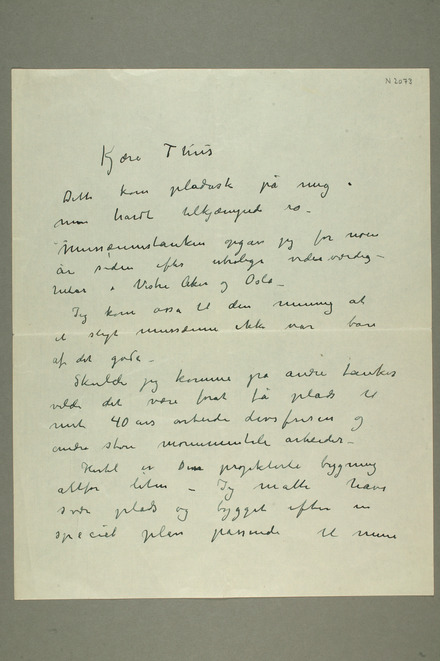 N 2073
Kjære Thiis
Dette kom pladask på mig i
min hardt tilkjæmpede ro –
Musæumstanken opgav jeg for noen
år siden efter utrolige viderværdig-
heter i Vestre Aker og Oslo –
Jeg kom også til den mening at
et sligt musæum ikke var bare
af det gode –
Skulde jeg komme på andre tanker
vilde det være forat få plads til
mit 40 års arbeide livsfrisen og
andre store monumentale arbeider –
Hertil er Din projekterte bygning
altfor liten – Jeg måtte have
svær plads og bygget efter en
speciel plan passende til mine